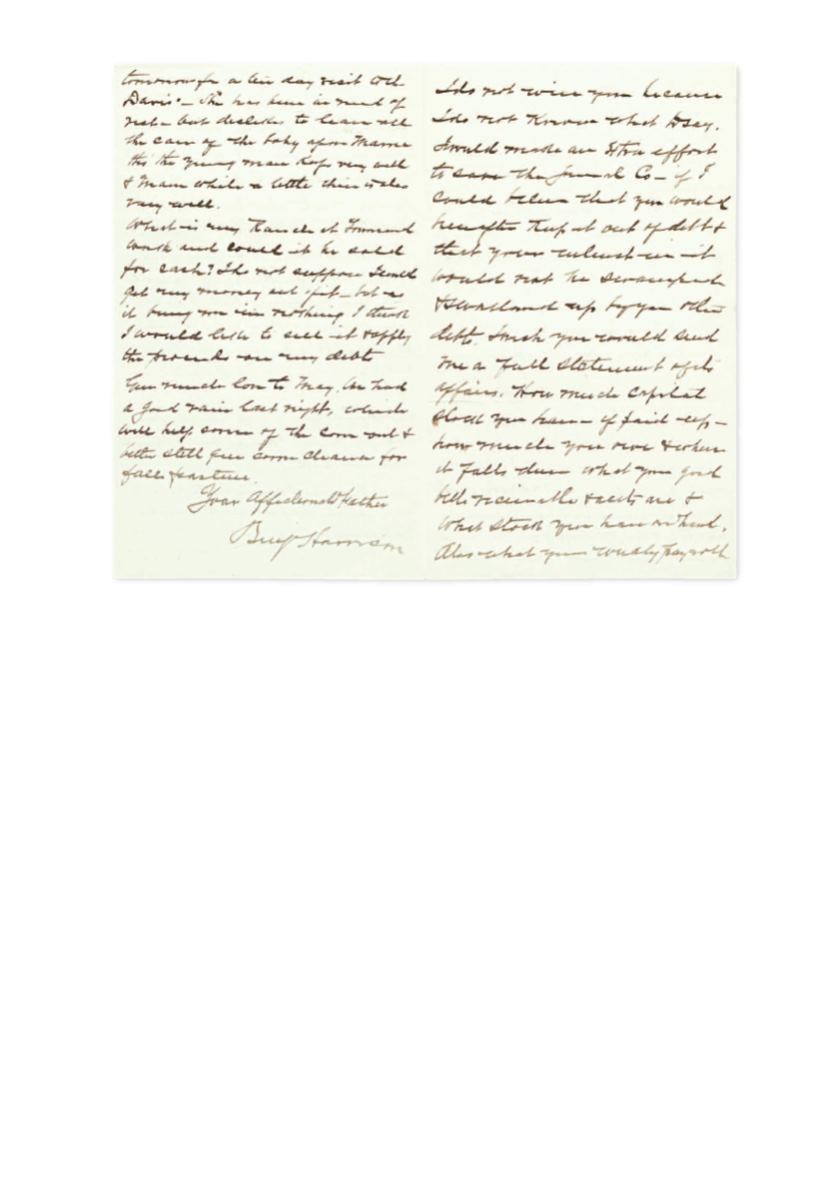 tomorrow for a ten day visit with
Davis' – She has been in need of
rest – but dislikes to leave all
the care of the baby upon Mamie
tho the young man keeps very well
& Mame while a little thin is also
very well.
What is my Ranch at Townsend
worth and could it be sold
for cash? I do not suppose I could
get my money out of it – but as
it brings me in nothing I think
I would like to sell it & apply
the proceeds on my debt
Give much love to May. We had
a good rain last night, which
will help some of the corn out &
better still give some chance for
fall pasture.
Your Affectionate father
Benj Harrison
I do not wire you because
I do not know what to say.
I would make an extra effort
to save the Journal Co – if I
could believe that you would
hereafter keep it out of debt &
that your interest in it
would not be
& swallowed up by your other
debts. I wish you would send
me a full statement of its
affairs. How much capital
stock you have – if paid up –
how much you owe & when
it falls due what your good
bills receivable & accts are &
what stock you have on hand.
Also what your weekly payroll